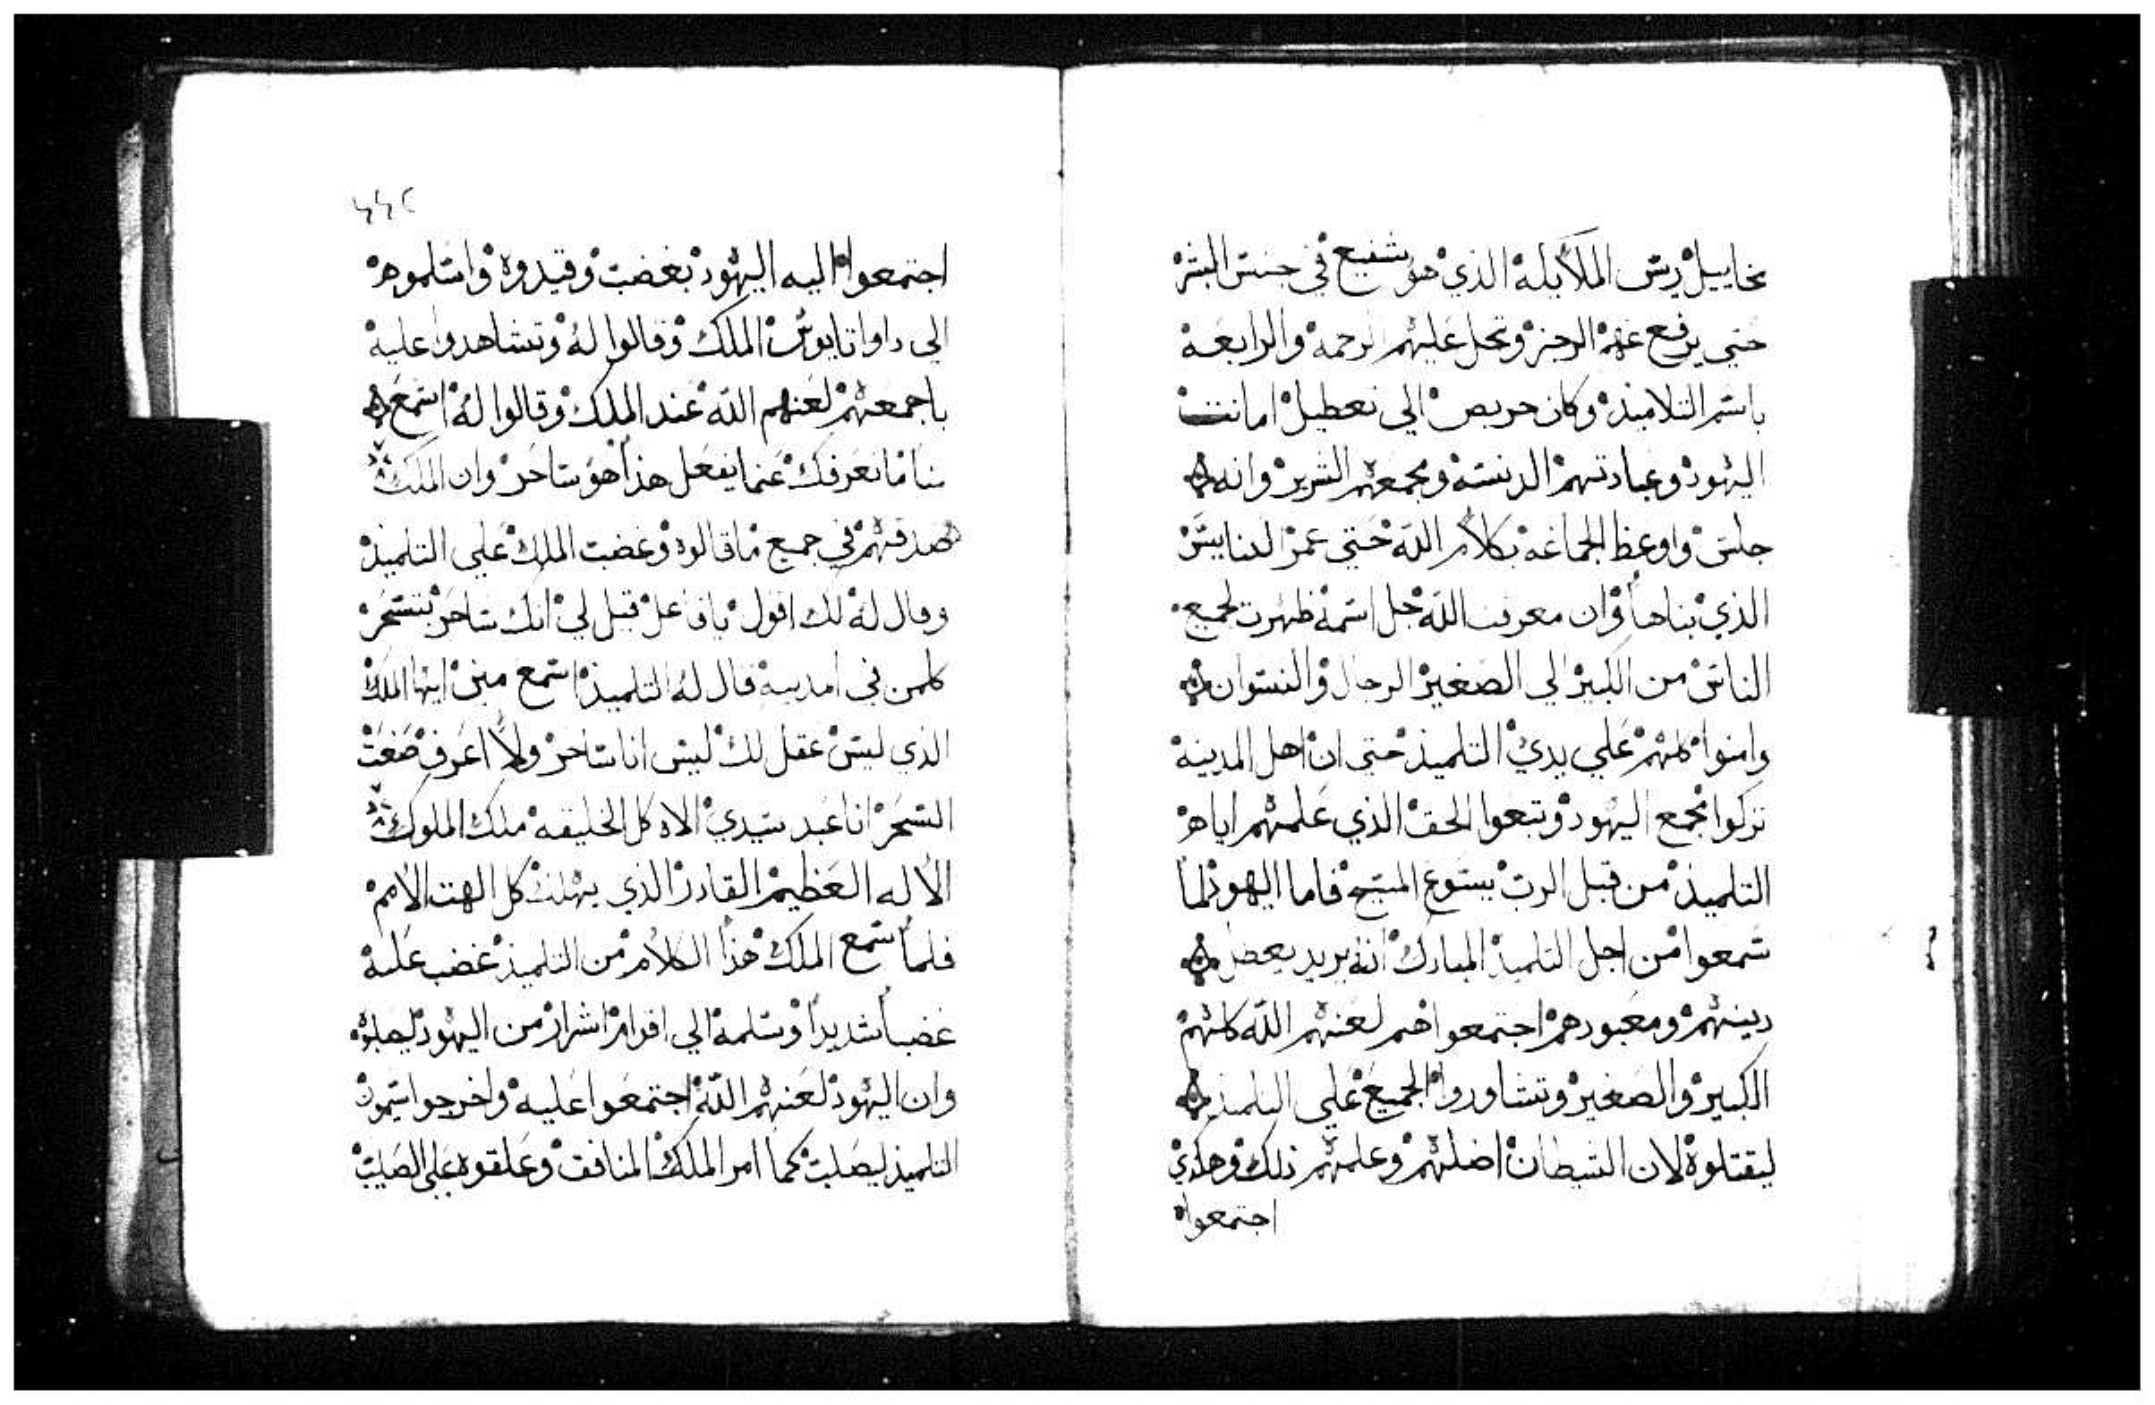 مخاييل ريس الملايكة الذي هو شفيع في جنس البشر
حتي يرفع عنهم الرجز وتحل عليهم الرحمه والرابعه
باسم التلاميذ وكان حريص الي تعطيل امانت
اليهود وعبادتهم الدنسه ومجمعهم الشرير وانه
جلس واوعظ الجماعه بكلام الله حتي عمر الكنايس
الذي بناها وان معرفت الله جل اسمه ظهرت لجميع
الناس من الكبير الي الصغير الرجال والنسوان
وامنوا كلهم علي يدي التلميذ حتي ان اهل المدينه
تركوا مجمع اليهود وتبعوا الحق الذي علمهم اياه
التلميذ من قبل الرب يسوع المسيح فاما اليهود لما
سمعوا من اجل التلميذ المبارك انه يريد يعطل
دينهم ومعبودهم اجتمعوا هم لعنهم الله كلهم
الكبير والصغير وتشاوروا الجميع علي التلميذ
ليقتلوه لان الشيطان اضلهم وعلمهم ذلك وهكذي
اجتمعوا
٢٤٤
اجتمعوا اليه اليهود بغضب وقيدوه واسلموه
الي الملك وقالوا له وتشاهدوا عليه
باجمعهم لعنهم الله عند الملك وقالوا له اسمع
منا ما نعرفك عنما يفعل هذا هو ساحر وان الملك
صدقهم في جميع ما قالوه وغضب الملك علي التلميذ
وقال له لك اقول يا فاعل قيل لي انك ساحر بتسحر
كلمن في المدينة قال له التلميذ اسمع مني ايها الملك
الذي ليس عقل لك ليس انا ساحر ولا اعرف صنعت
السحر انا عبد سيدي الاه كل الخليقه ملك الملوك
الاله العظيم القادر الذي يهلك كل الهت الامم
فلما سمع الملك هذا الكلام من التلميذ غضب عليه
غضباً شديداً وسلمه الي اقوام اشرار من اليهود ليصلبوه
وان اليهود لعنهم الله اجتمعوا عليه واخرجوا سيمون
التلميذ ليصلب كما امر الملك المنافق وعلقوه علي الصليب